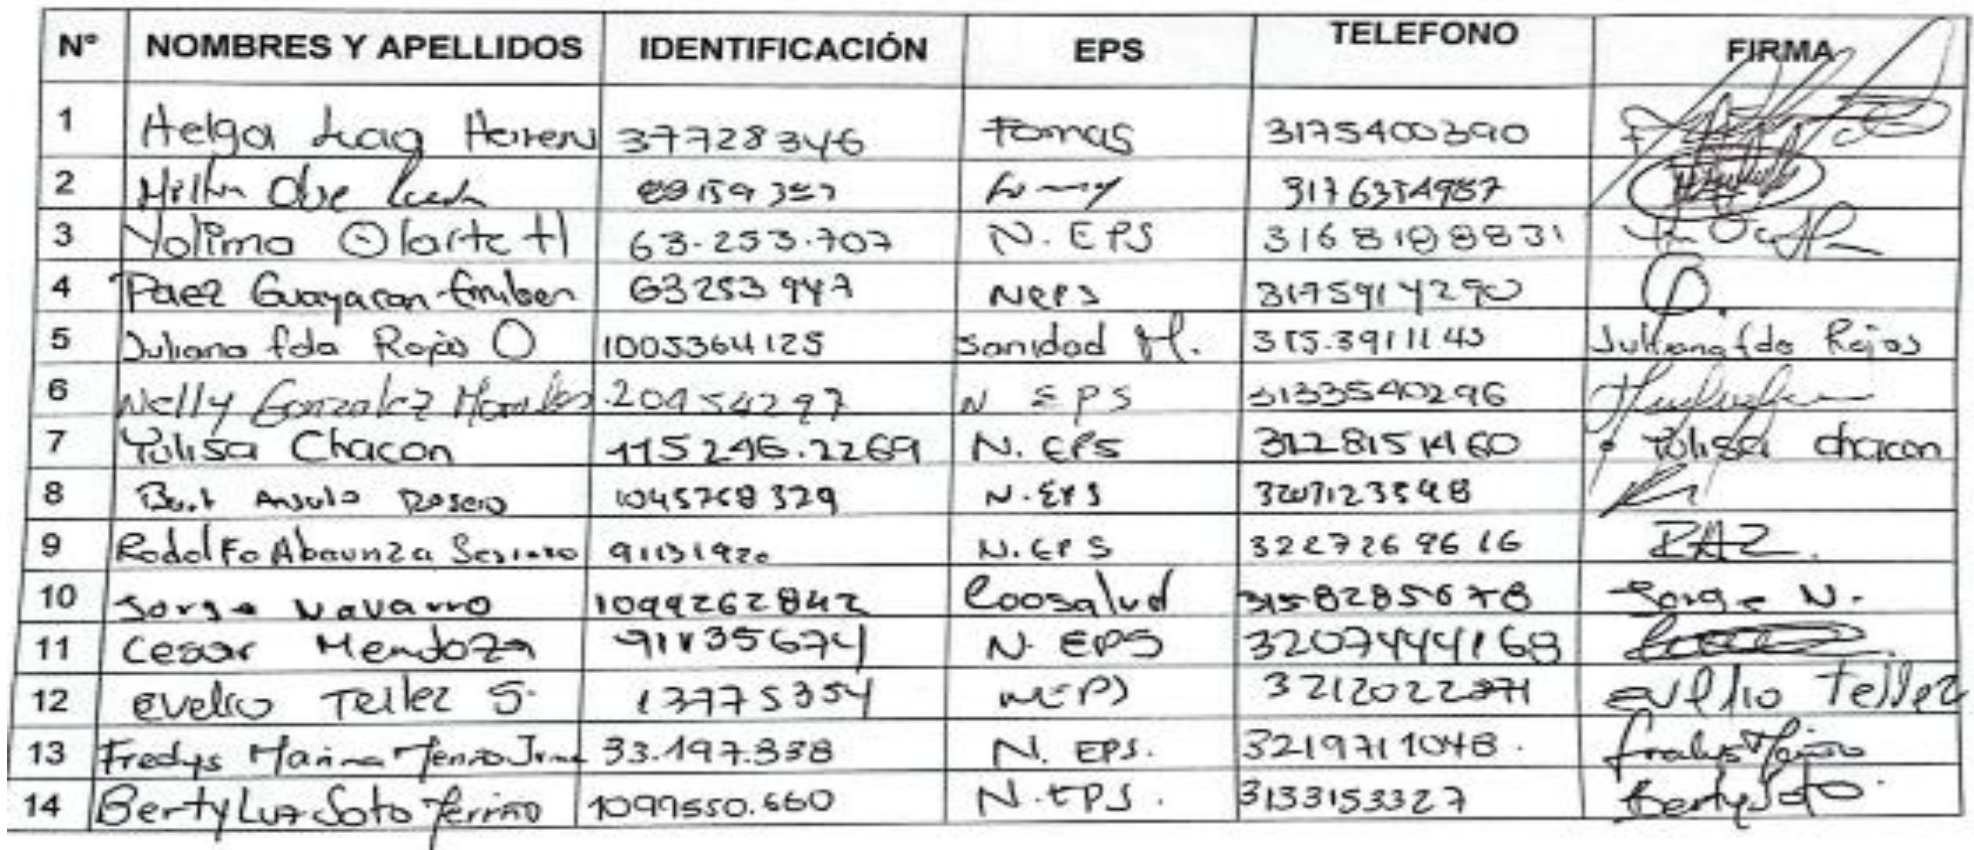 N° NOMBRES Y APELLIDOS IDENTIFICACIÓN EPS TELEFONO FIRMA
1 Helga 37728346 Fomag 3175400390
2 3176354987
3 Yolima Olarte H 63-253.707 N. EPS 3168188831
4 Paez Guayacan 63253947 NEPS 3175914290
5 Juliana fda Rojas O 1005364125 Sanidad M. 315.3911143 Juliana fda Rojas
6 Nelly Gonzalez Morales 20154297 N EPS 3133540296
7 Yulisa Chacon 115246.2269 N. EPS Yulisa chacon
8 Angulo 1045768329 N. EPS
9 Rodolfo Abaunza 91131920 N. EPS 3227269616
10 Jorge Navarro 1099262842 Coosalud 3158285678 Jorge N.
11 Cesar Mendoza 91135674 N. EPS 3207444168
12 Evelio Tellez S. 13775354 N.EPS evelio Tellez
13 Fredys 33.197.338 N. EPS. 3219711048.
14 Berty Luz Soto 1099550.660 N.EPS. 3133153327 Berty Soto